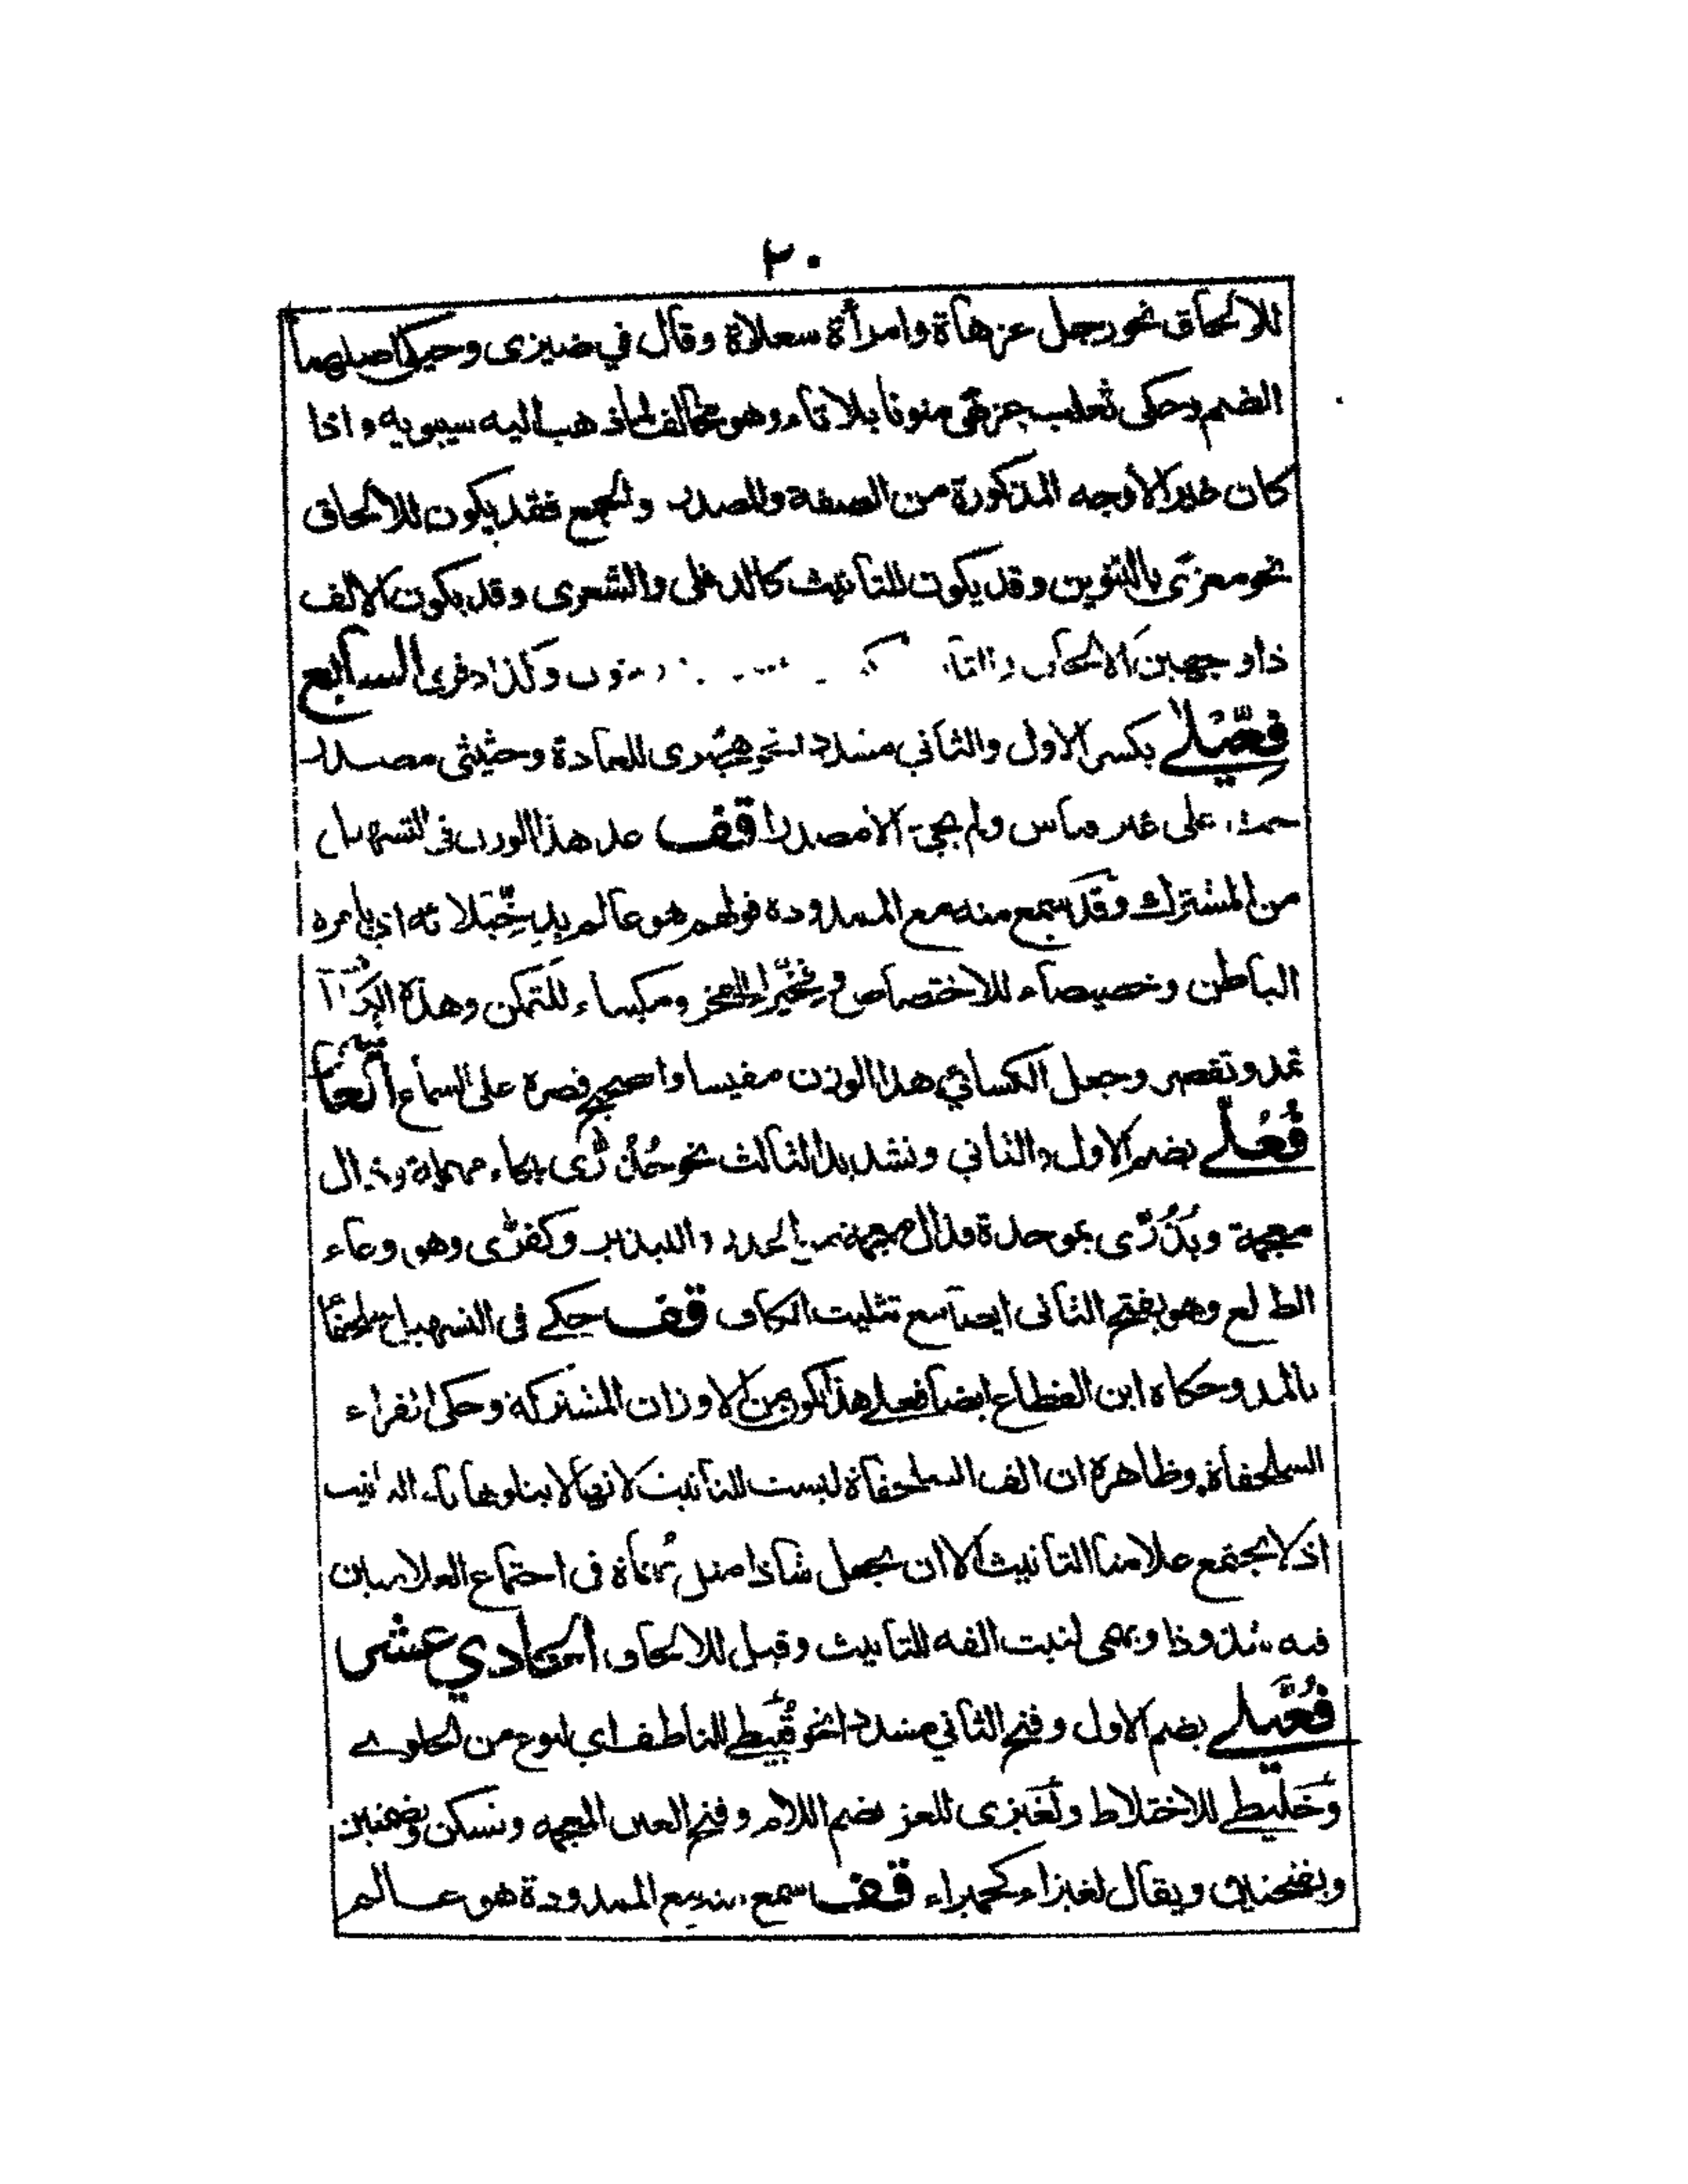 ٢٠
للالحاق نحو رجل عزهاة وامرأة سعلاة وقال في ضيزى وحيكى اصلهما
الضم وحكى ثعلب عزهى منونا بلا تاء وهو مخالف لما ذهب اليه سيبويه واذا
كان غير الاوجه المذكورة من الصفة والمصدر والجمع فقد يكون للالحاق
نحو معزى بالتنوين وقد يكون للتأنيث كالدفلى والشعرى وقد يكون الالف
ذا وجهين الالحاق والتأ وكذا دفرى السابع
فِعِّيلى بكسر الاول والثاني مشددا نحو هجيرى للعادة وحثيثى مصدر
حث على غير قياس ولم يجئ الا مصدرا قف عد هذا الوزن فى التسهيل
من المشترك وقد سمع منه مع الممدودة قولهم هو عالم بدخيلائه اى بامره
الباطن وخصيصاء للاختصاص وفخيراء للفخر ومكيساء للتمكن وهذه
تمد وتقصر وجعل الكسائي هذا الوزن مقيسا والصحيح قصره على السماع
فُعُلّى بضم الاول والثاني وتشديد الثالث نحو حُذُرّى بحاء مهملة وذال
معجمة وبُذُرّى بموحدة وذال معجمة من الحذر والتبذير وكفرّى وهو وعاء
الطلع وهو بفتح الثانى ايضا مع تثليث الكاف قف حكى فى التسهيل سلحفا
بالمد وحكاه ابن القطاع ايضا ففعلى هذا يكون من الاوزان المشتركة وحكى الفراء
السلحفاة وظاهره ان الف السلحفاة ليست للتأنيث لانها لا يتلوها تاء التأنيث
اذ لا يجتمع علامتا التأنيث الا ان يجعل شاذا مثل بُهماة فى اجتماع العلامتان
فيه شذوذا وبهمى لنبت الفه للتأنيث وقيل للالحاق الحادي عشر
فُعَّيلى بضم الاول وفتح الثاني مشددا نحو قُبَّيطى للناطف اي لنوع من الحلوى
وخُلَّيطى للاختلاط ولُغَّيزى للغز بضم اللام وفتح الغين المعجمه وتسكن وبضمتين
وبفتحتين ويقال لغيزاء كحميراء قف سمع منه مع الممدودة هو عالم